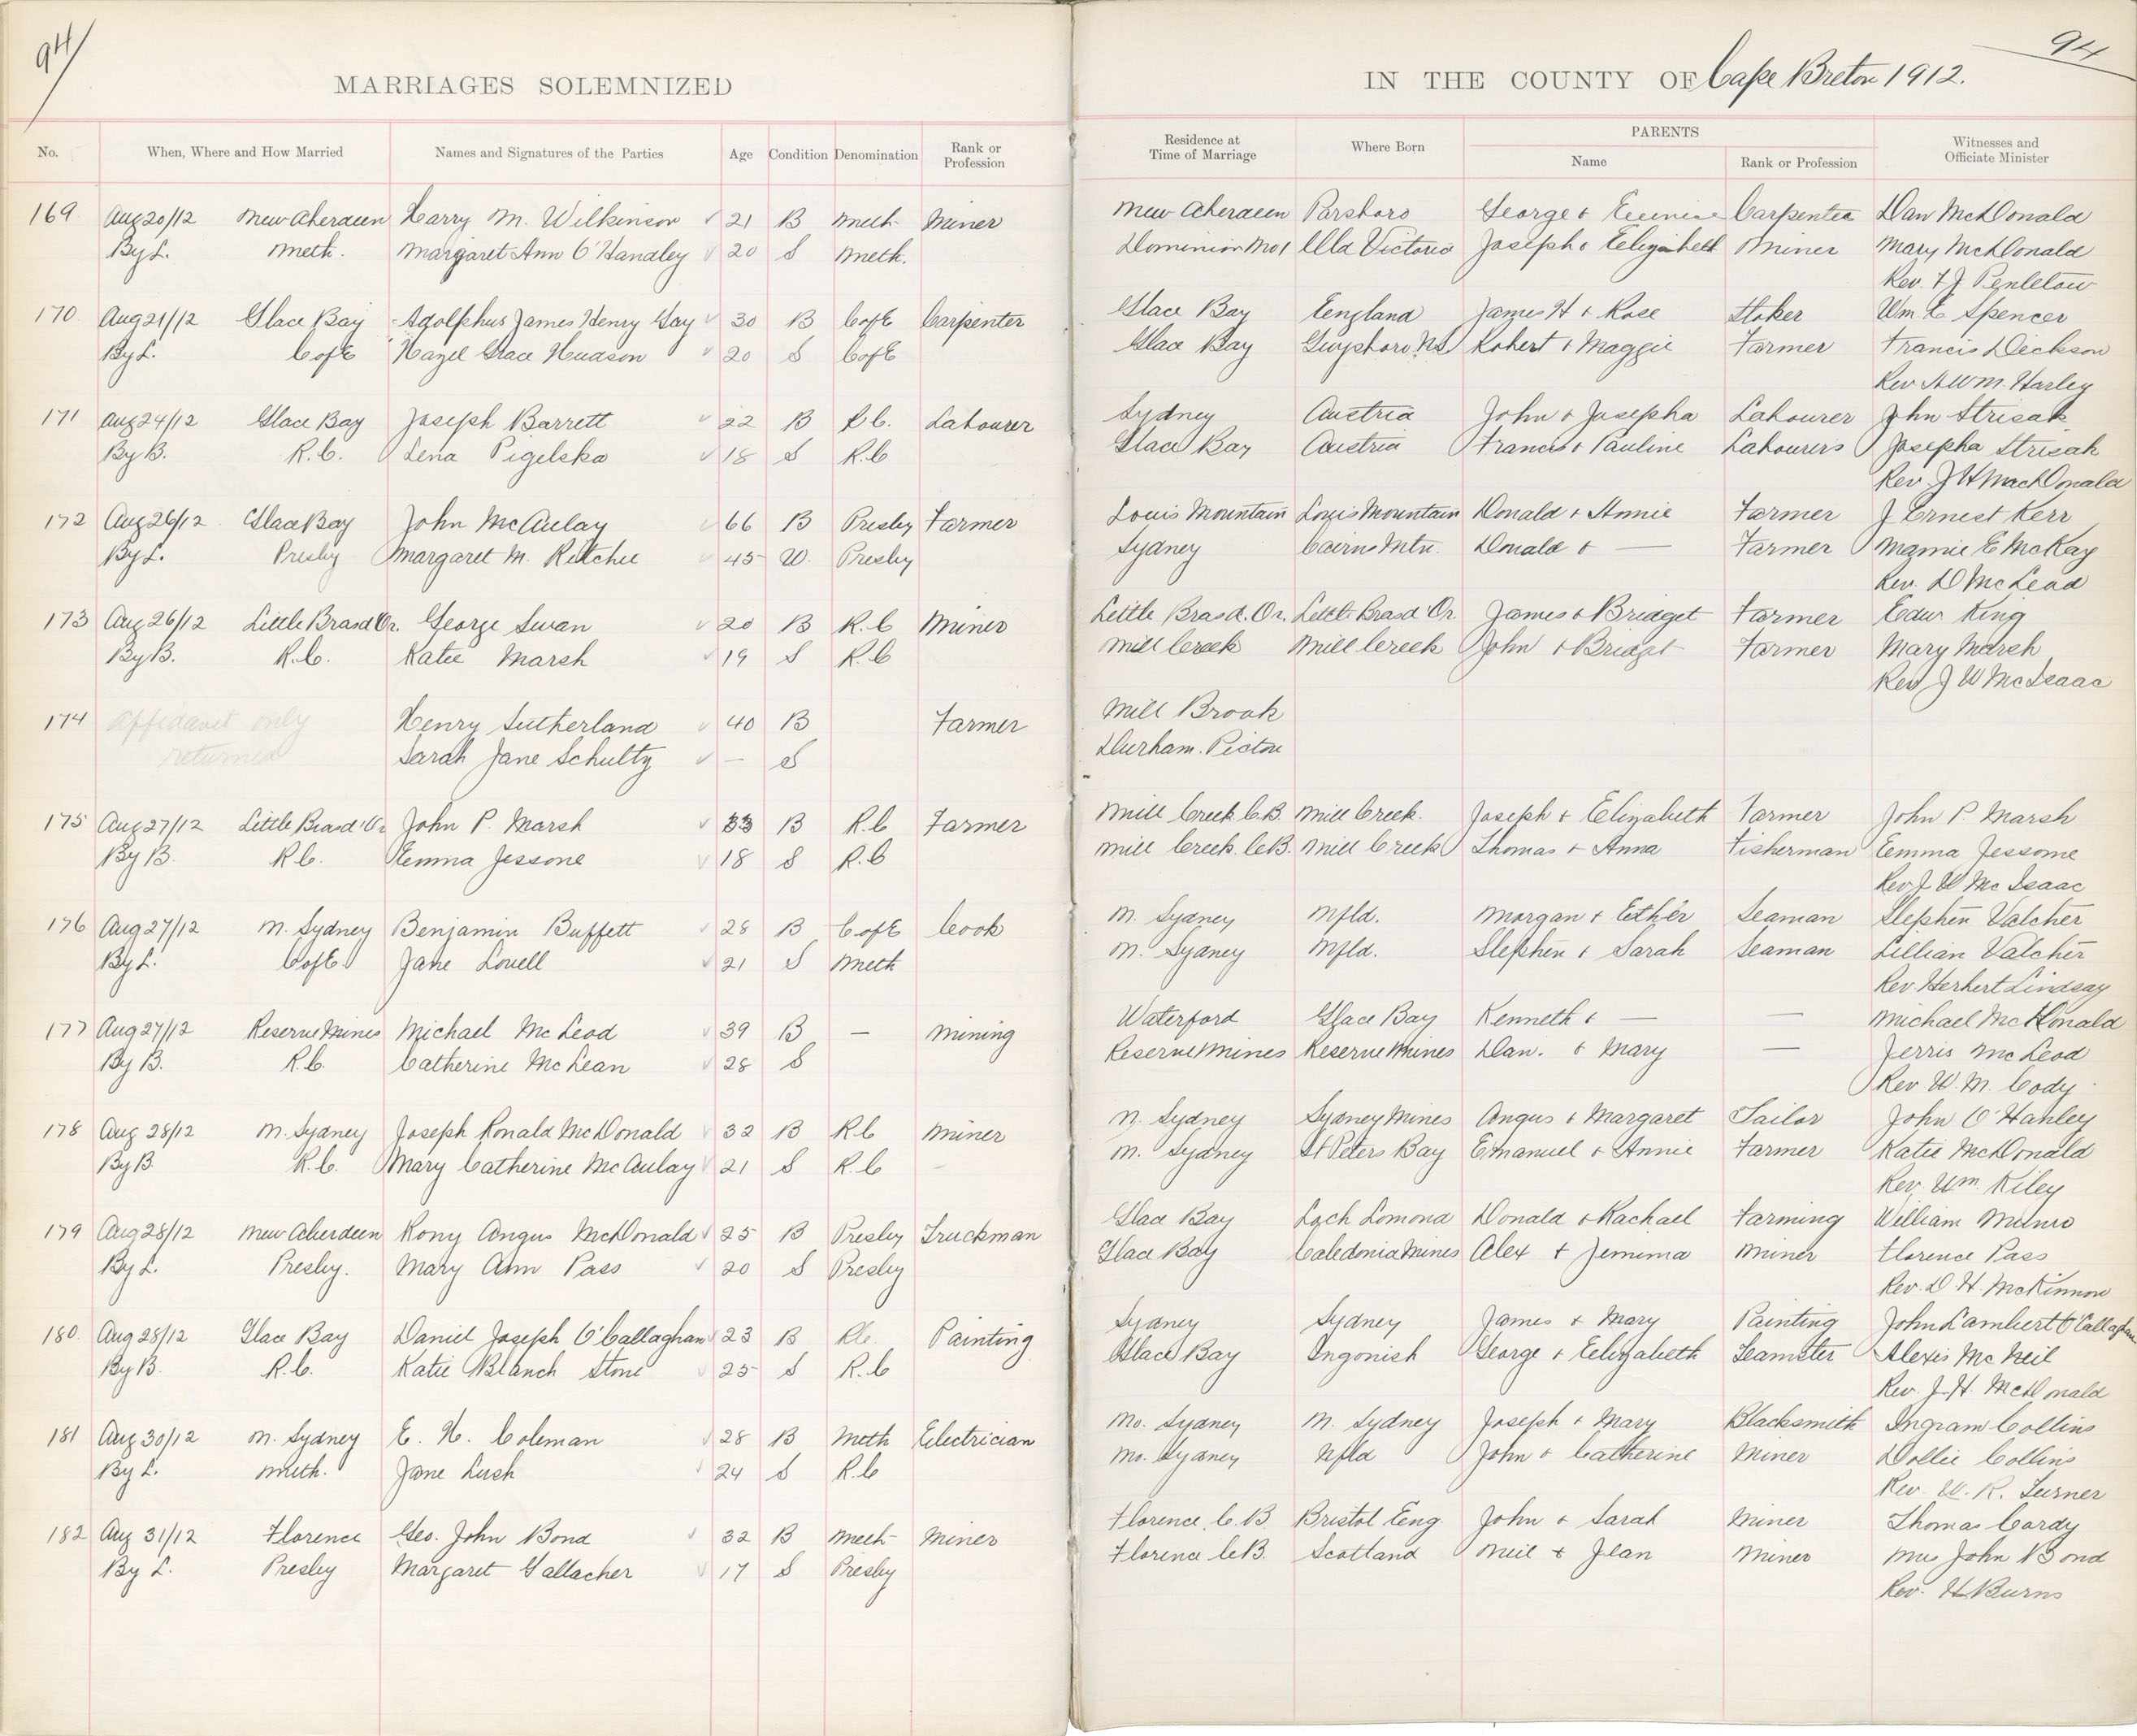 94
94
MARRIAGES SOLEMNIZED
IN THE COUNTY OF Cape Breton 1912.
No. When, Where and How Married Names and Signatures of the Parties Age Condition Denomination Rank or Profession Residence at Time of Marriage Where Born PARENTS Name Rank or Profession Witnesses and Officiate Minister
169 Aug 20/12 New Aberdeen Harry M. Wilkinson 21 B Meth Miner New Aberdeen Parsboro George & Eunice Carpenter Dan McDonald
By L. Meth. Margaret Ann O'Handley 20 S Meth. Dominion No 1 Victoria Joseph & Elizabeth Miner Mary McDonald
Rev. F J
170 Aug 21/12 Glace Bay Adolphus James Henry Gay 30 B C of E Carpenter Glace Bay England James H & Rose Stoker Wm. E Spencer
By L. C of E Hazel Grace Hudson 20 S C of E Glace Bay Guysboro NS Robert & Maggie Farmer Francis Dickson
Rev. A W M. Harley
171 Aug 24/12 Glace Bay Joseph Barrett 22 B R C. Labourer Sydney Austria John & Josepha Labourer John Strisak
By B. R.C. Lena Pigelska 18 S R.C Glace Bay Austria Francis & Pauline Labourers Josepha Strisak
Rev. J H MacDonald
172 Aug 26/12 Glace Bay John McAulay 66 B Presby Farmer Louis Mountain Louis Mountain Donald & Annie Farmer J Ernest Kerr
By L. Presby Margaret M. Ritchie 45 W. Presby Sydney Cairns Mtn. Donald & — Farmer Mamie E McKay
Rev. D McLeod
173 Aug 26/12 Little Bras d'Or. George Swan 20 B R.C Miner Little Bras d. Or. Little Bras d'Or. James & Bridget Farmer Edw King
By B. R.C. Katie Marsh 19 S R.C Mill Creek Mill Creek John & Bridget Farmer Mary Marsh
Rev J W McIsaac
174 Affidavit only Henry Sutherland 40 B Farmer Mill Brook
returned Sarah Jane Schultz — S Durham. Pictou
175 Aug 27/12 Little Bras d'Or John P. Marsh 33 B R.C Farmer Mill Creek C.B. Mill Creek. Joseph & Elizabeth Farmer John P. Marsh
By B. R C. Emma Jessone 18 S R.C Mill Creek. C.B. Mill Creek Thomas & Anna Fisherman Emma Jessome
Rev J W McIsaac
176 Aug 27/12 N. Sydney Benjamin Buffett 28 B C of E Cook N. Sydney Nfld. Morgan & Esther Seaman Stephen Vatcher
By L. C of E. Jane Lovell 21 S Meth N. Sydney Nfld. Stephen & Sarah Seaman Lillian Vatcher
Rev Herbert Lindsay
177 Aug 27/12 Reserve Mines Michael McLeod 39 B — Mining Waterford Glace Bay Kenneth & — — Michael McDonald
By B. R.C. Catherine McLean 28 S Reserve Mines Reserve Mines Dan. & Mary — Jerris McLeod
Rev W. M. Cody.
178 Aug 28/12 N. Sydney Joseph Ronald McDonald 32 B R C Miner N. Sydney Sydney Mines Angus & Margaret Tailor John O'Hanley
By B. R.C. Mary Catherine McAulay 21 S R.C N. Sydney St Peters Bay Emanuel & Annie Farmer Katie McDonald
Rev. Wm. Kiley
179 Aug 28/12 New Aberdeen Rony Angus McDonald 25 B Presby Truckman Glace Bay Loch Lomond Donald & Rachael Farming William Munro
By L. Presby. Mary Ann Pass 20 S Presby Glace Bay Caledonia Mines Alex & Jemima Miner Florence Pass
Rev. D. H. McKinnon
180. Aug 28/12 Glace Bay Daniel Joseph O'Callaghan 23 B R C. Painting Sydney Sydney James & Mary Painting John Lambert O'Callaghan
By B. R.C. Katie Blanch Stone 25 S R.C Glace Bay Ingonish George & Elizabeth Teamster Alexis McNeil
Rev. J. H. McDonald
181 Aug 30/12 N. Sydney E. H. Coleman 28 B Meth Electrician No. Sydney N. Sydney Joseph & Mary Blacksmith Ingram Collins
By L. Meth. Jane Lush 24 S R.C No. Sydney Nfld John & Catherine Miner Dollie Collins
Rev. W. R. Turner
182 Aug 31/12 Florence Geo. John Bond 32 B Meth Miner Florence, C.B. Bristol Eng. John & Sarah Miner Thomas Cardy
By L. Presby Margaret Gallacher 17 S Presby Florence C.B. Scotland Neil & Jean Miner Mrs John Bond
Rev. H Burns